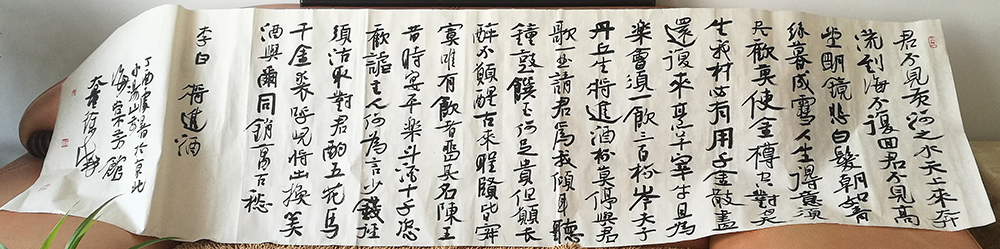 君不見黃河之水天上來奔
流到海不復回君不見高
堂明鏡悲白髮朝如青
絲暮成雪人生得意須
尽歡莫使金樽空對月天
生我材必有用千金散盡
還復來烹羊宰牛且為
樂會須一飲三百杯岑夫子
丹丘生將進酒杯莫停與君
歌一曲請君為我傾耳聽
鐘鼓饌玉何足貴但願長
醉不願醒古來聖賢皆寂
寞唯有飲者留其名陳王
昔時宴平樂斗酒十千恣
歡謔主人何為言少錢徑
須沽取對君酌五花馬
千金裘呼兒將出換美
酒與爾同銷萬古愁
李白 將進酒
丁酉處暑於京北
小湯山